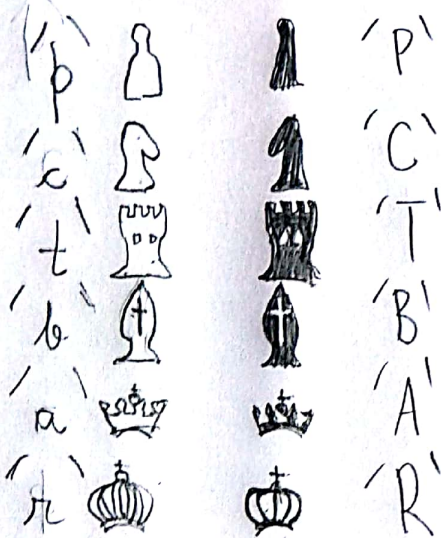 'p' 'P'
'c' 'C'
't' 'T'
'b' 'B'
'a' 'A'
'r' 'R'